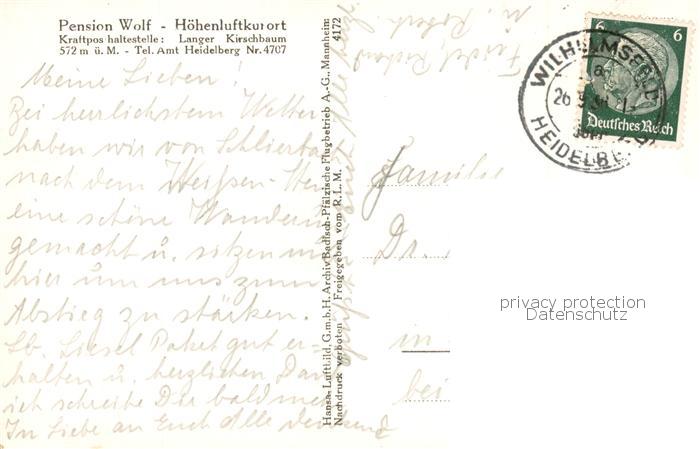 Pension Wolf - Höhenluftkurort
Kraftpos haltestelle: Langer Kirschbaum
572 m ü. M. - Tel. Amt Heidelberg Nr. 4707
Meine Lieben!
Bei herrlichstem Wetter
haben wir von Schlierbach
nach dem Weißen-Stein
eine schöne Wanderung
gemacht u. sitzen nun
hier um uns zum
Abstieg zu stärken.
Lb. Liesel Paket gut er-
halten u. herzlichen Dank
ich schreibe Dir bald mehr
In Liebe an Euch Alle denkend
Hansa-Luftbild G.m.b.H. Archiv Badisch-Pfälzische Flugbetrieb A.-G., Mannheim
Nachdruck verboten Freigegeben vom R.L.M. 4172
Familie
Dr.
in
bei
6 6
Deutsches Reich
WILHELMSFELD
HEIDELBE
privacy protection
Datenschutz